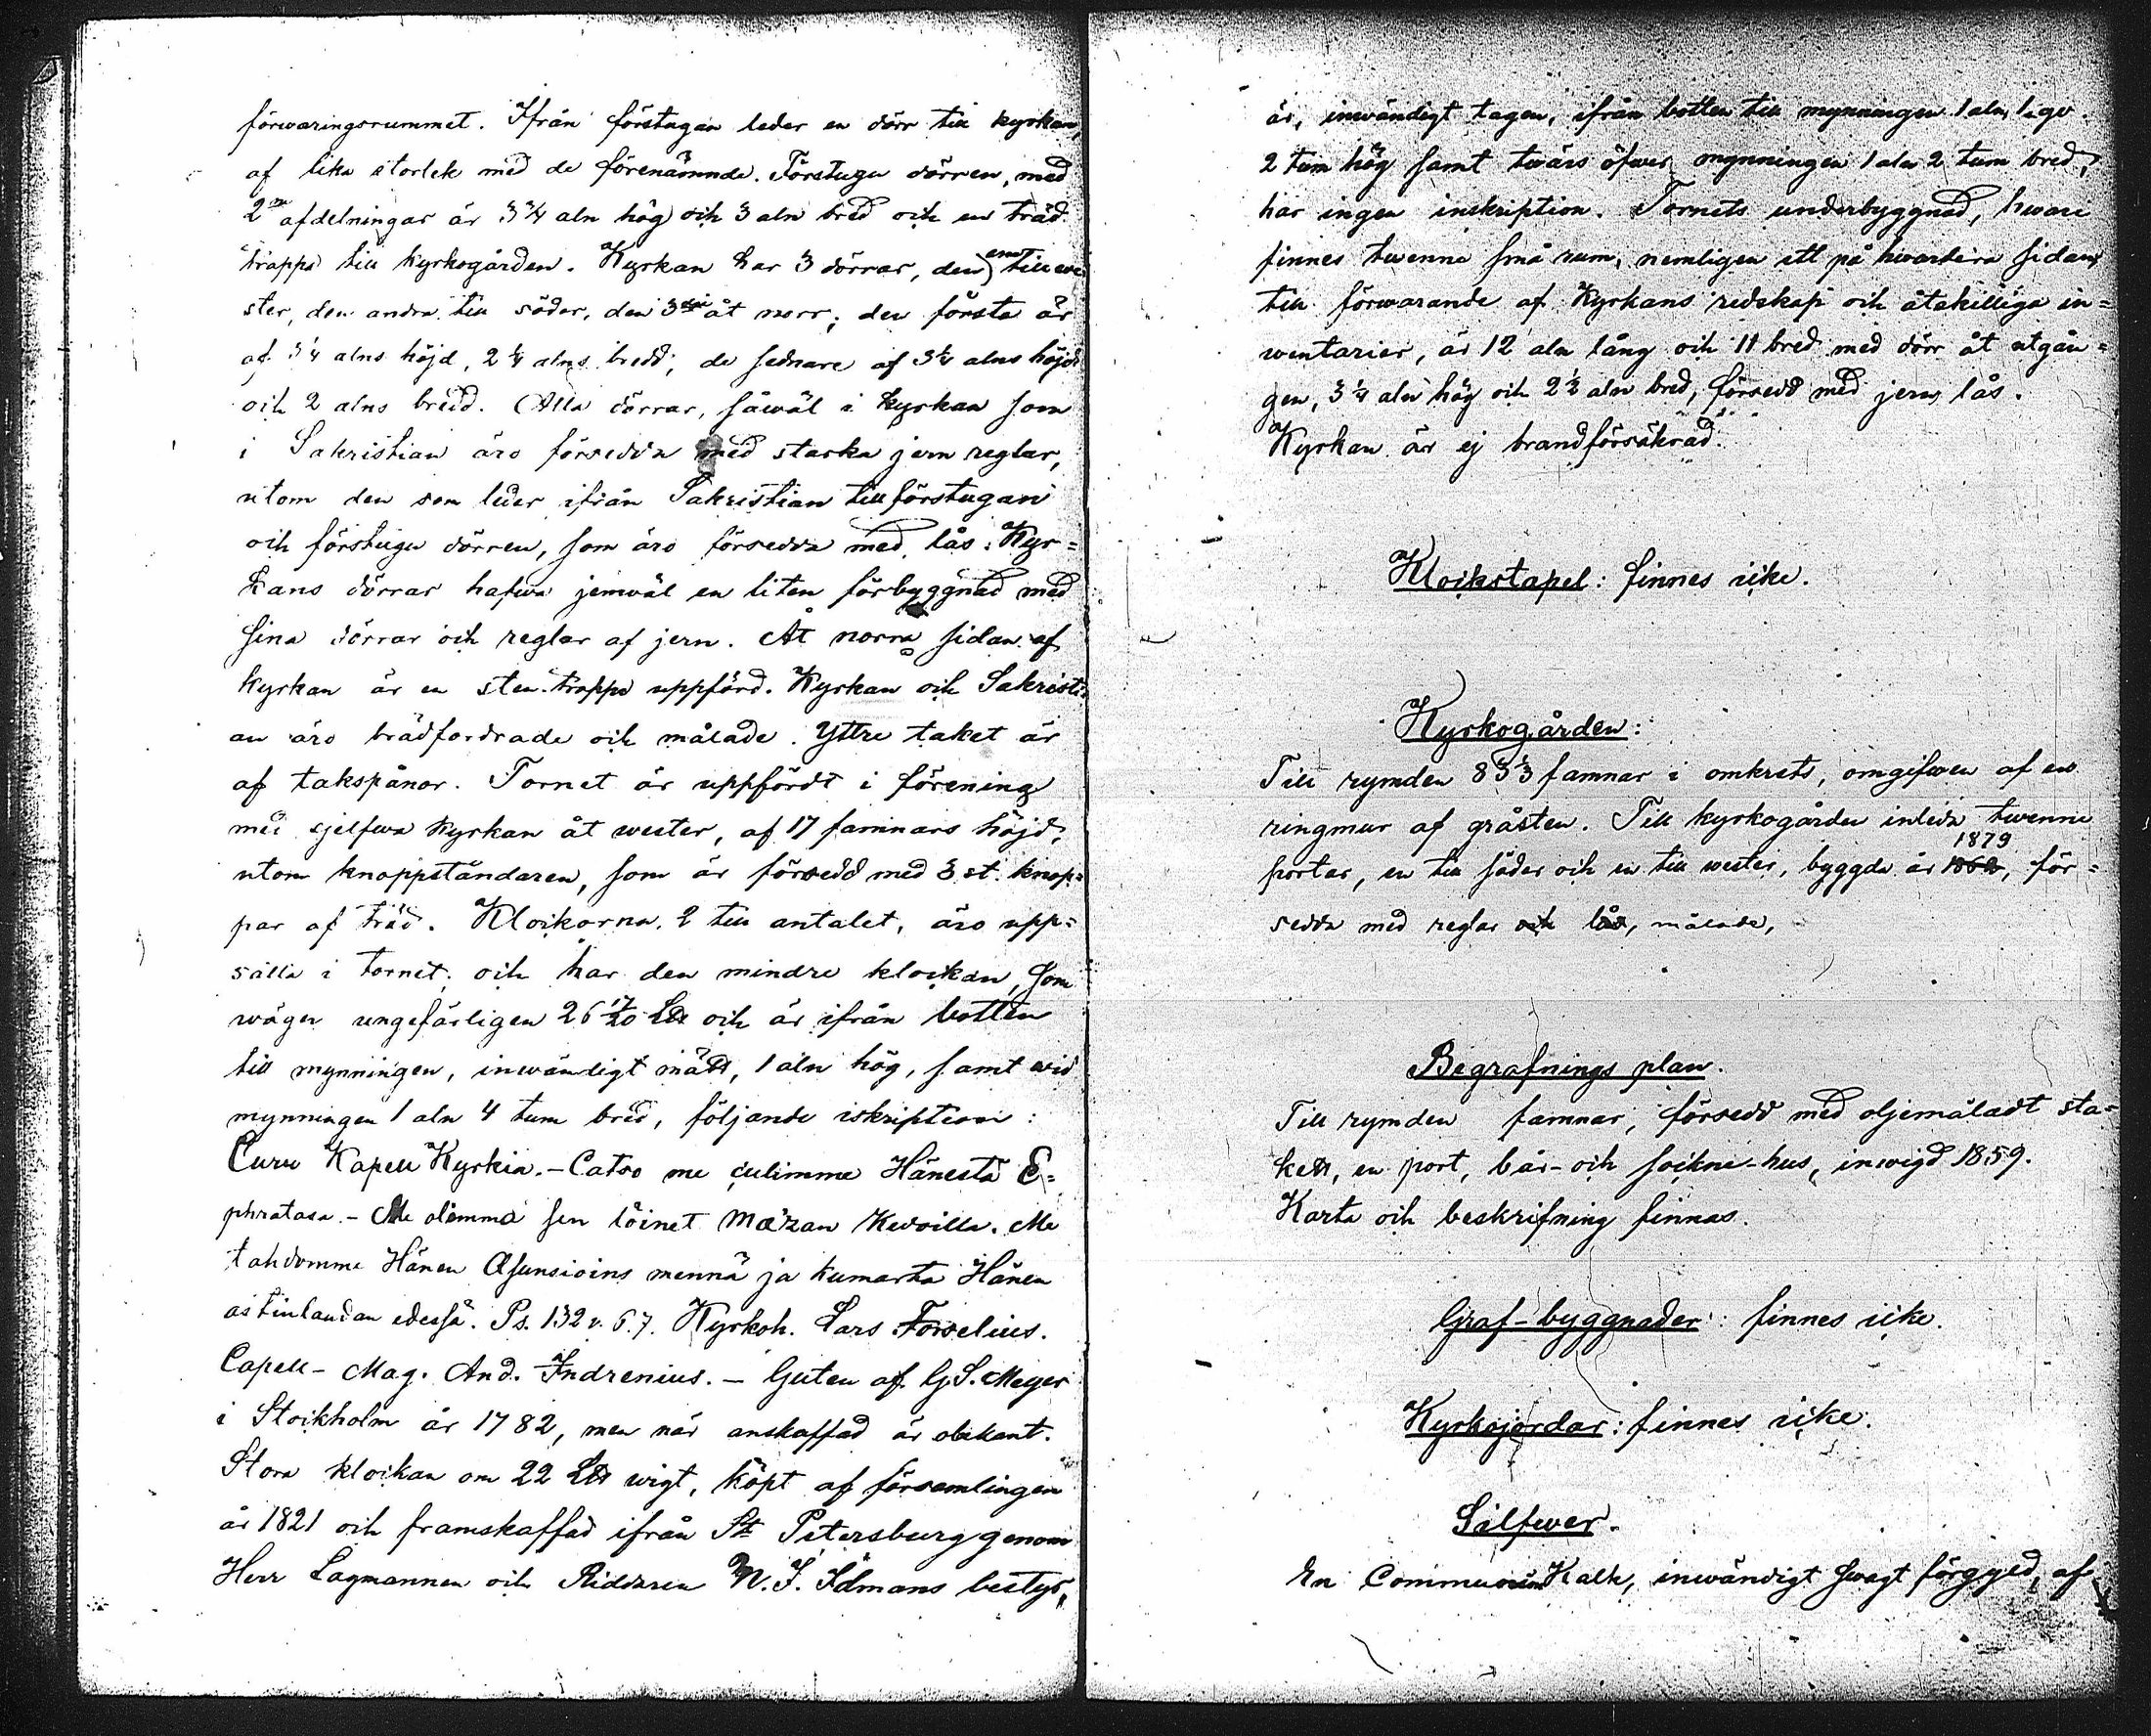 förwaringsrummet. Ifrån förstugan leder en dörr till kyrkan,
af lika storlek med de förenämnde. Förstugu dörren, med
2ne afdelningar är 3 3/4 aln hög och 3 aln bred och en träd
trappa till kyrkogården. Kyrkan har 3 dörrar, den ena till we
ster, den andra till söder, den 3die åt norr; den första är
af 3 1/4 alns höjd, 2 1/4 alns bredd; de sednare af 3 1/4 alns höjd
och 2 alns bredd. Alla dörrar, såwäl i kyrkan som
i Sakristian äro försedda med starka jern reglar,
utom den som leder ifrån Sakristian till förstugan
och förstugu dörren, som äro försedda med lås. Kyr=
kans dörrar hafwa jemwäl en liten förbyggnad med
sina dörrar och reglar af jern. At norra sidan af
kyrkan är en sten trappa uppförd. Kyrkan och Sakristi=
an äro brädfordrade och målade. Yttre taket är
af takspånor. Tornet är uppfördt i förening
med sjelfwa kyrkan åt wester, af 17 famnars höjd,
utom knoppståndaren, som är försedd med 3 st. knop=
par af träd. Klockorna, 2 till antalet, äro upp=
sälla i tornet; och har den mindre klockan, som
wäger ungefärligen 26 17/20 L℔ och är ifrån botten
till mynningen, inwändigt mätt, 1 aln hög, samt wid
mynningen 1 aln 4 tum bred, följande iskription:
Curu Kapell Kyrkia. - Catso me culimme Hänestä E=
phratasa. - Me olemma sen löinet Mezan Kedoilla. Me
tahdomme Hänen Asunsioins mennä ja kumarta Hänen
astinlaudan edessä. Ps. 132 v. 6.7. Kyrkoh. Lars Forselius.
Capell - Mag. And. Indrenius. - Guten af G. S. Meyer
i Stockholm år 1782, men när anskaffad är obekant.
Stora klockan om 22 L℔ wigt, köpt af församlingen
år 1821 och framskaffad ifrån St Petersburg genom
Herr Lagmannen och Riddaren N. J. Idmans bestyr,
är, inwändigt tagen, ifrån botten till mynningen 1 aln 1 qv.
2 tum hög samt twärs öfwer mynningen 1 aln 2 tum bred,
har ingen inskription. Tornets underbyggnad, hwari
finnes twenne små rum, nemligen ett på hwardera sidan,
till förwarande af Kyrkans redskap och åtskilliga in=
wentarier, är 12 aln lång och 11 bred med dörr åt utgån=
gen, 3 1/4 aln hög och 2 1/2 aln bred, försedd med jern lås.
Kyrkan är ej brandförsäkrad.
Klockstapel: finnes icke.
Kyrkogården:
Till rymden 83 1/3 famnar i omkrets, omgifwen af en
ringmur af gråsten. Till kyrkogården inleda twenne
1879
portar, en till söder och en till wester, byggda år 1862, för=
sedda med reglar och lås, målade,
Begrafnings plan.
Till rymden famnar, försedd med oljemåladt sta=
kett, en port, bår- och sockne-hus, inwigd 1859.
Karta och beskrifning finnas.
Graf-byggnader: finnes icke.
Kyrkojordar: finnes icke.
Silfwer.
En Communion Kalk, inwändigt swagt förgyld, af